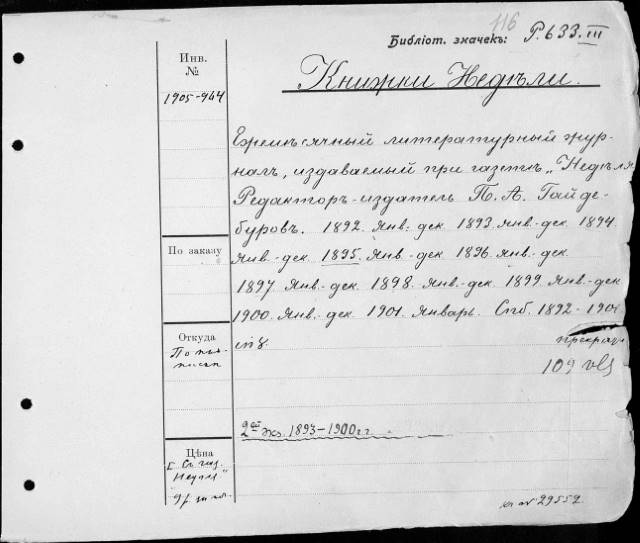 116
Библіот. значекъ: Р.633.III
Инв.
№
1905-944
Книжки Недѣли.
Ежемѣсячный литературный жур-
налъ, издаваемый при газетѣ „Недѣля
Редакторъ-издатель П. А. Гайде-
буровъ. 1892. Янв.-дек. 1893. Янв.-дек. 1894
Янв.-дек. 1895. Янв.-дек. 1896. Янв.-дек.
1897. Янв.-дек. 1898. Янв.-дек. 1899. Янв.-дек.
1900. Янв.-дек. 1901. Январь. Спб. 1892-1901
in 8.
прекращ
109 vls
По заказу
Откуда
По под-
писк
2ой экз. 1893-1900 гг.
Цѣна
29552